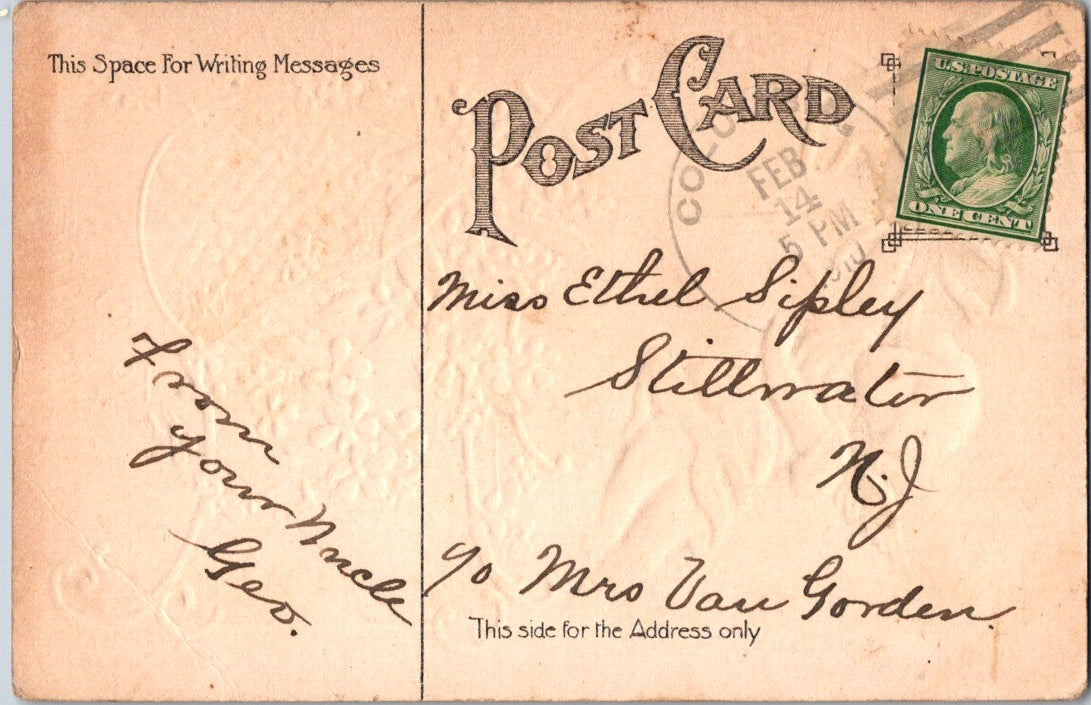 This Space For Writing Messages
POST CARD
U.S. POSTAGE
ONE CENT
FEB.
14
5 PM
Miss Ethel Sipley
Stillwater
N.J
c/o Mrs Van Gorden.
From
your Uncle
Geo.
This side for the Address only